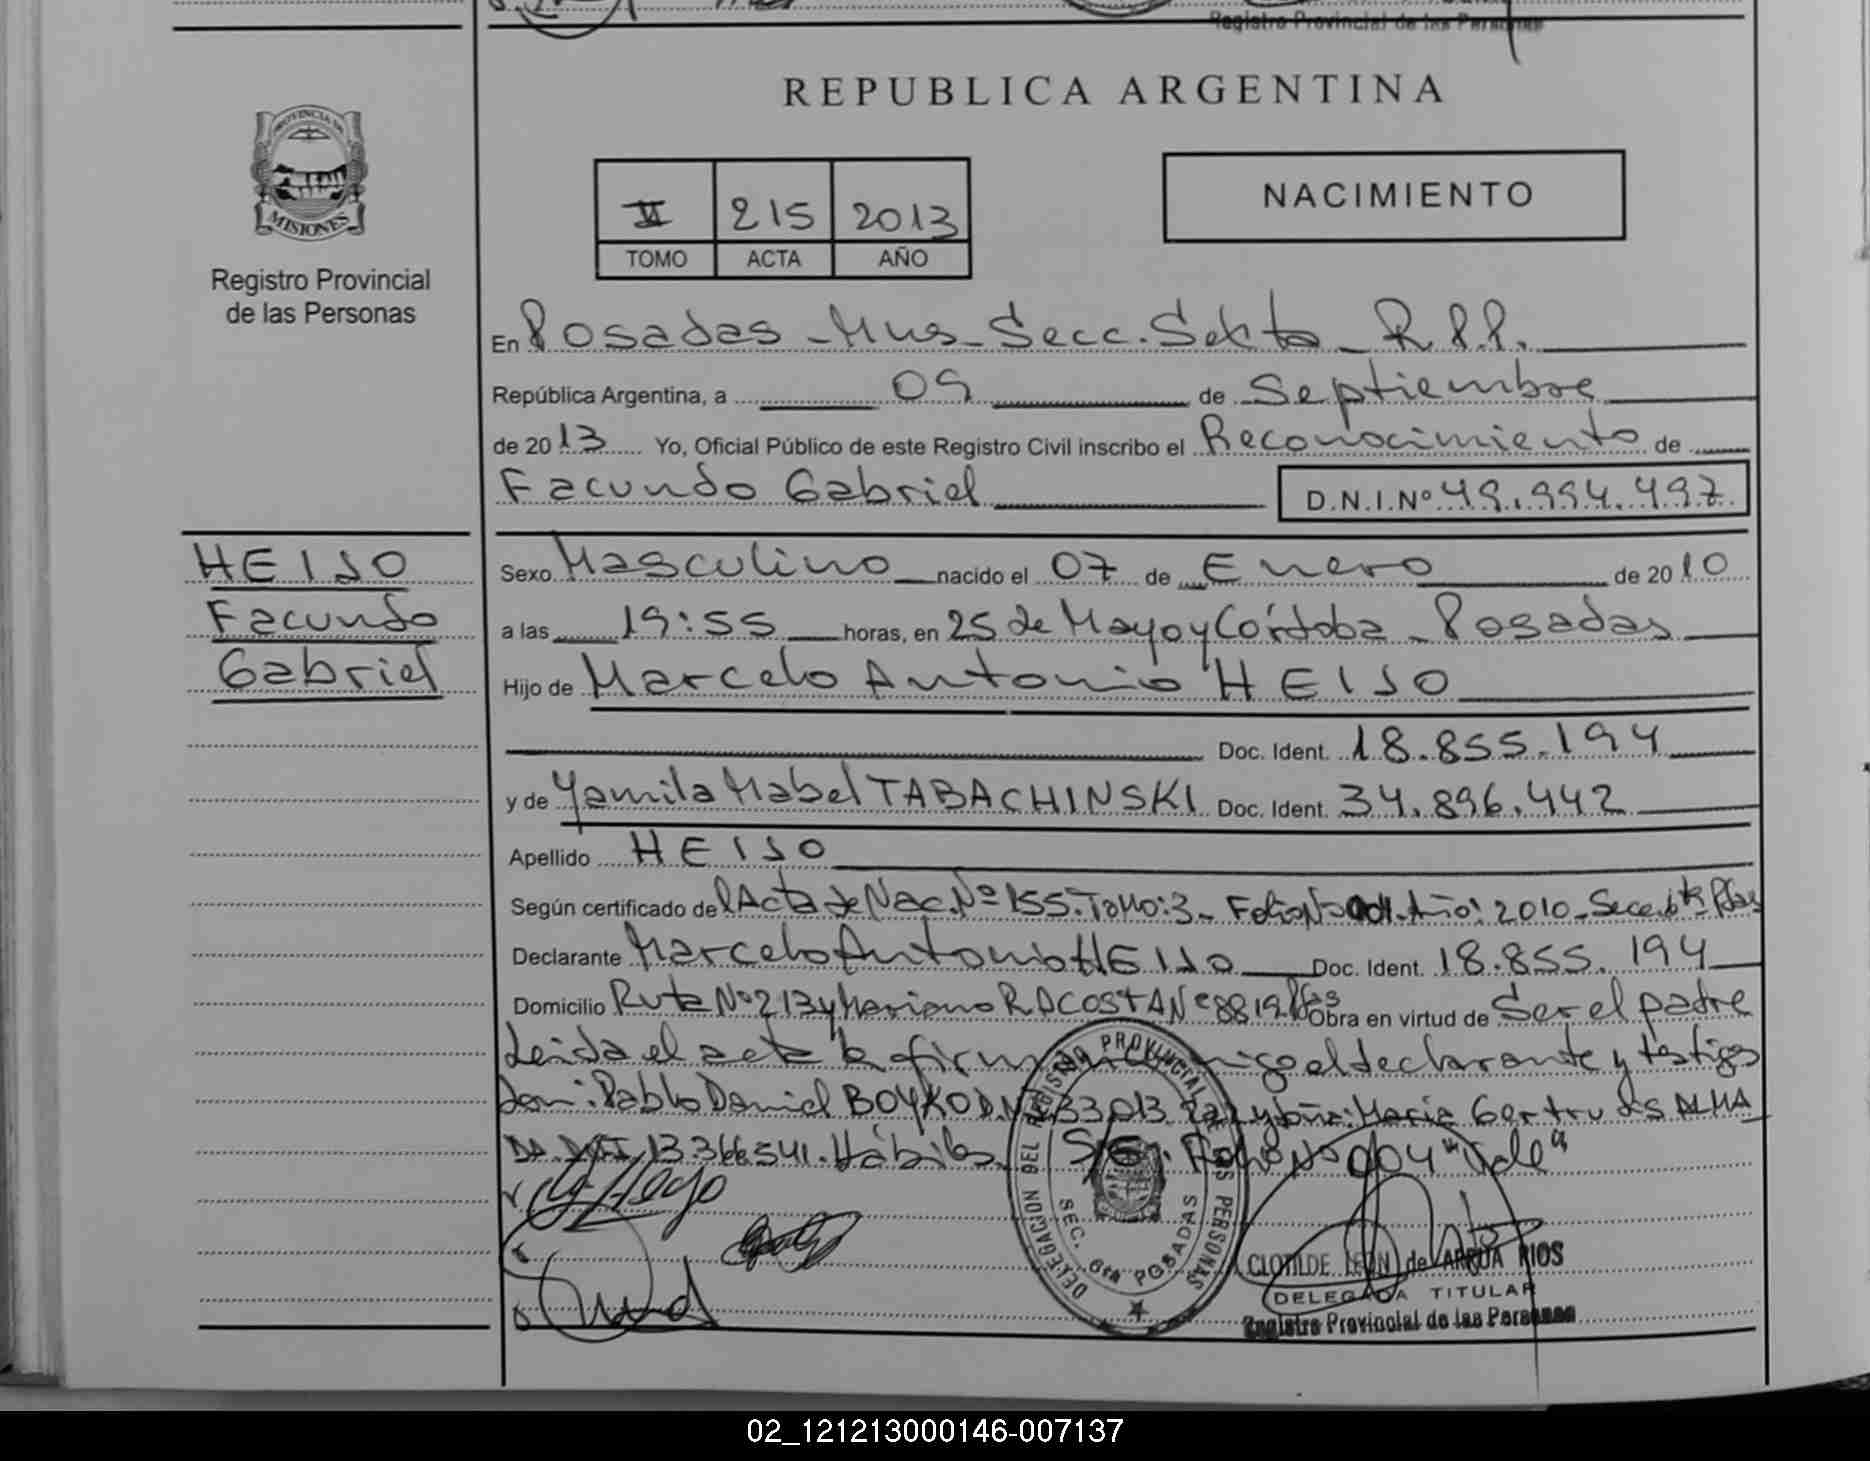 Registro Provincial de las Personas
REPUBLICA ARGENTINA
PROVINCIA DE
MISIONES
Registro Provincial
de las Personas
II 215 2013
TOMO ACTA AÑO
NACIMIENTO
En Posadas - Mns - Secc. Sexta - R.P.P.
República Argentina, a 09 de Septiembre
de 2013 Yo, Oficial Público de este Registro Civil inscribo el Reconocimiento de
Facundo Gabriel D.N.I.Nº 49.994.497
HEISO
Facundo
Gabriel
Sexo Masculino nacido el 07 de Enero de 2010
a las 19:55 horas, en 25 de Mayo y Córdoba - Posadas
Hijo de Marcelo Antonio HEISO
Doc. Ident. 18.855.194
y de Yamila Mabel TABACHINSKI Doc. Ident. 34.896.442
Apellido HEISO
Según certificado del Acta de Nac. Nº 155. Tomo: 3 - Folio Nº Año: 2010 - Secc. 6ta Pdas
Declarante Marcelo Antonio HEISO Doc. Ident. 18.855.194
Domicilio Ruta Nº 213 y Mariano R ACOSTA Nº 8819 Pdas Obra en virtud de Ser el padre
Leida el acta la firman conmigo el declarante y testigos
don: Pablo Daniel BOYKO D.N.I. 33.013. y doña: Maria Gertrudis ALMA
DA DNI 13.366.541. Hábiles. S/E: Folio Nº 004 "Vale"
DELEGACION DEL REGISTRO PROVINCIAL DE LAS PERSONAS
SEC. 6ta POSADAS
CLOTILDE LEON de ARRUA RIOS
DELEGADA TITULAR
Registro Provincial de las Personas
02_121213000146-007137